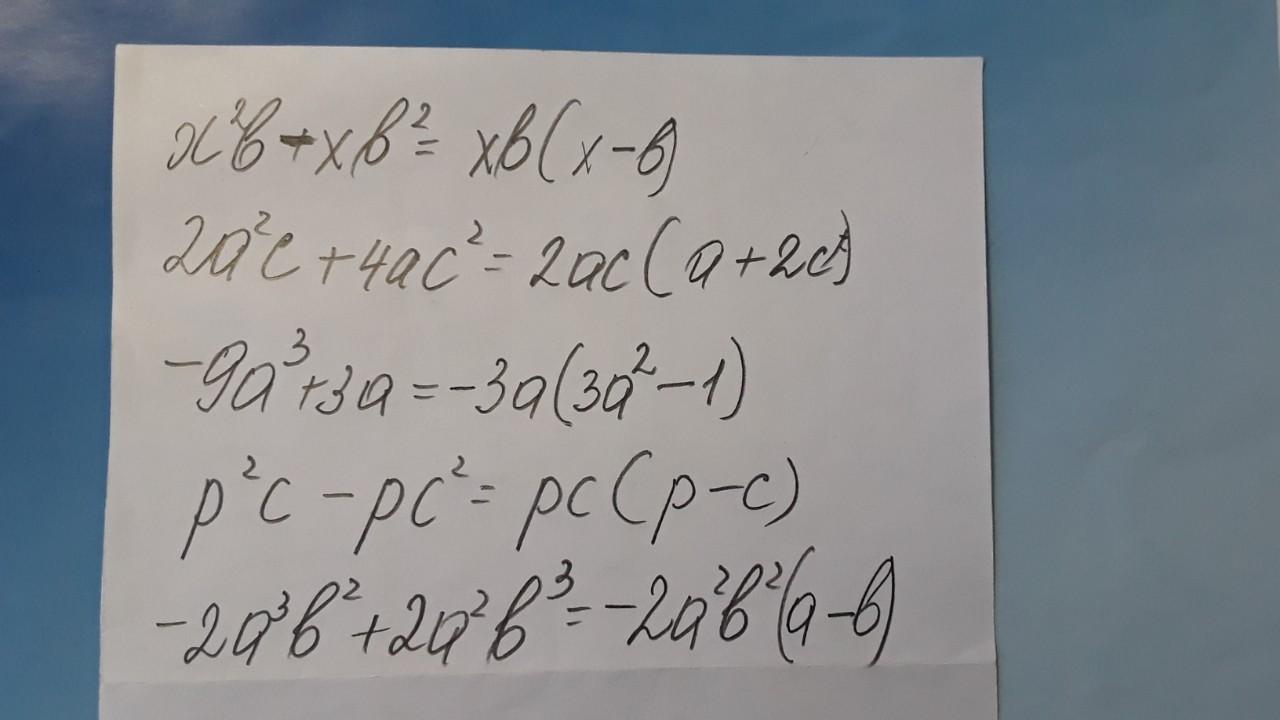 x²b - xb² = xb(x-b)
2a²c + 4ac² = 2ac(a+2c)
-9a³+3a = -3a(3a²-1)
p²c - pc² = pc(p-c)
-2a³b² + 2a²b³ = -2a²b²(a-b)